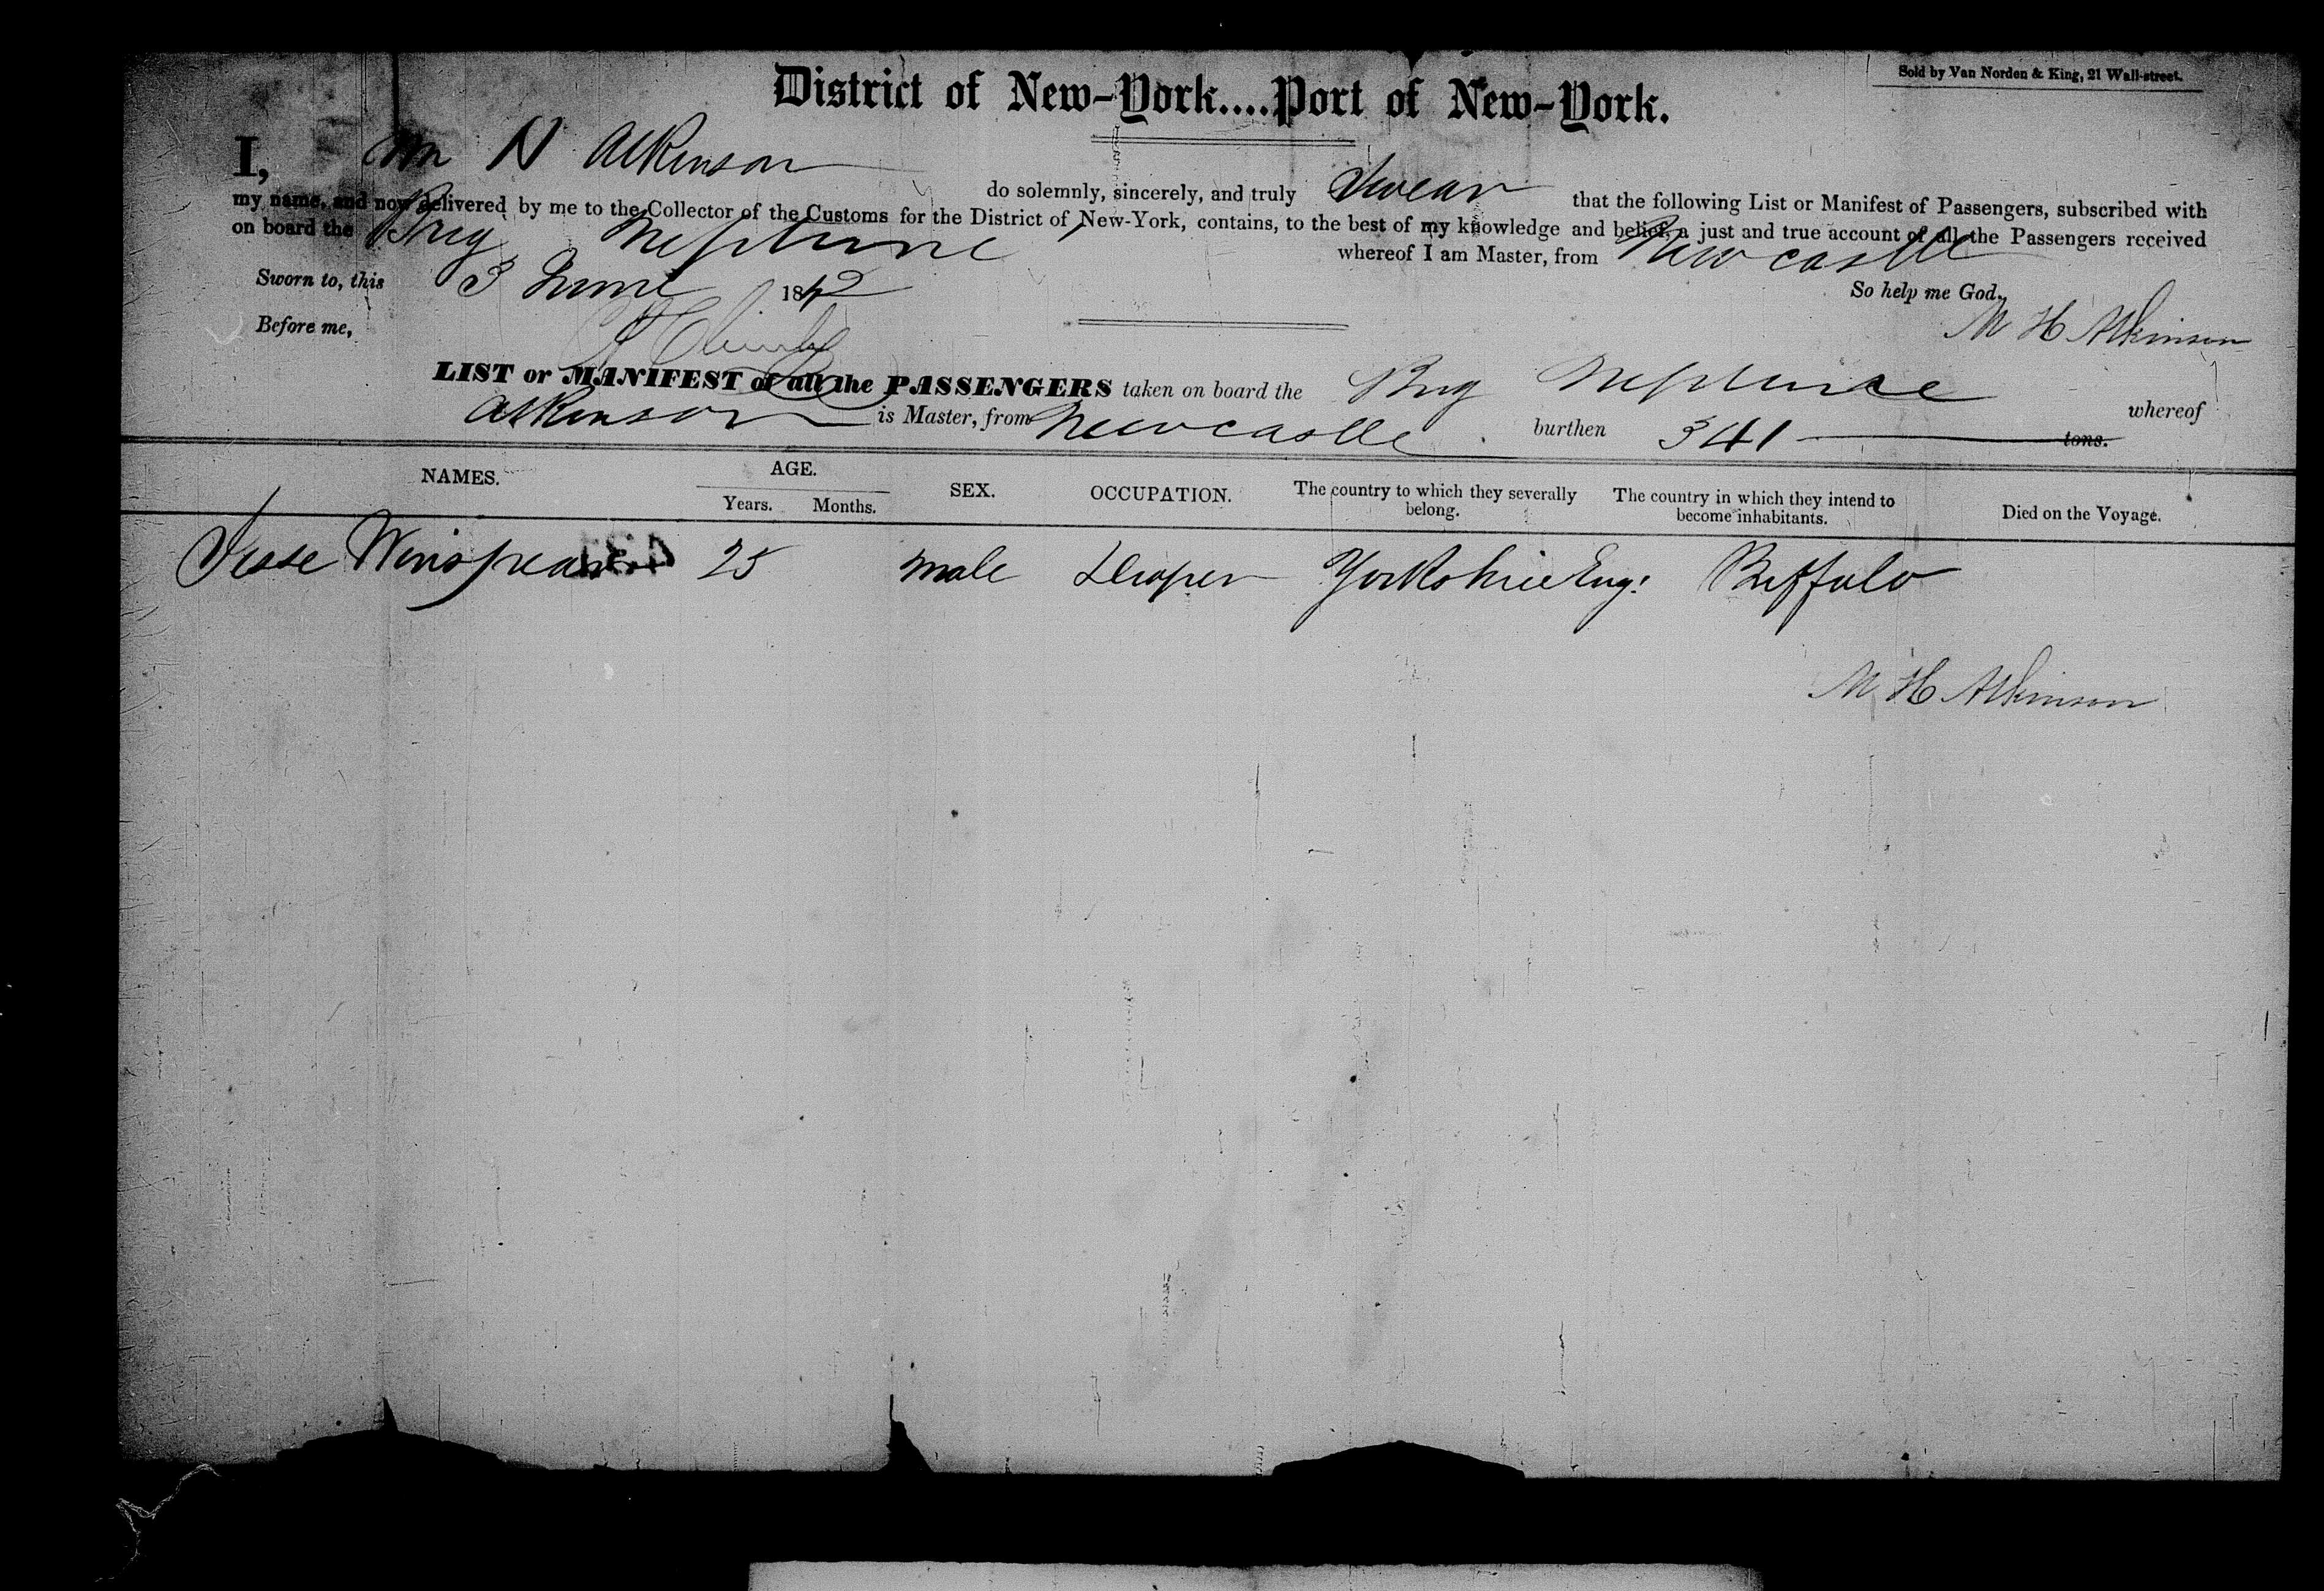 Sold by Van Norden & King, 21 Wall-street.
District of New-York....Port of New-York.
I, Wm N Atkinson do solemnly, sincerely, and truly Swear that the following List or Manifest of Passengers, subscribed with
my name, and now delivered by me to the Collector of the Customs for the District of New-York, contains, to the best of my knowledge and belief, a just and true account of all the Passengers received
on board the Brig Neptune whereof I am Master, from New castle
Sworn to, this 3 June 1842 So help me God.
Before me, M H Atkinson
LIST or MANIFEST of all the PASSENGERS taken on board the Brig Neptune whereof
Atkinson is Master, from Newcastle burthen 341 tons.
NAMES. AGE. SEX. OCCUPATION. The country to which they severally belong. The country in which they intend to become inhabitants. Died on the Voyage.
Years. Months.
Jesse Winspear 25 male Draper Yorkshire Eng: Buffalo
M H Atkinson